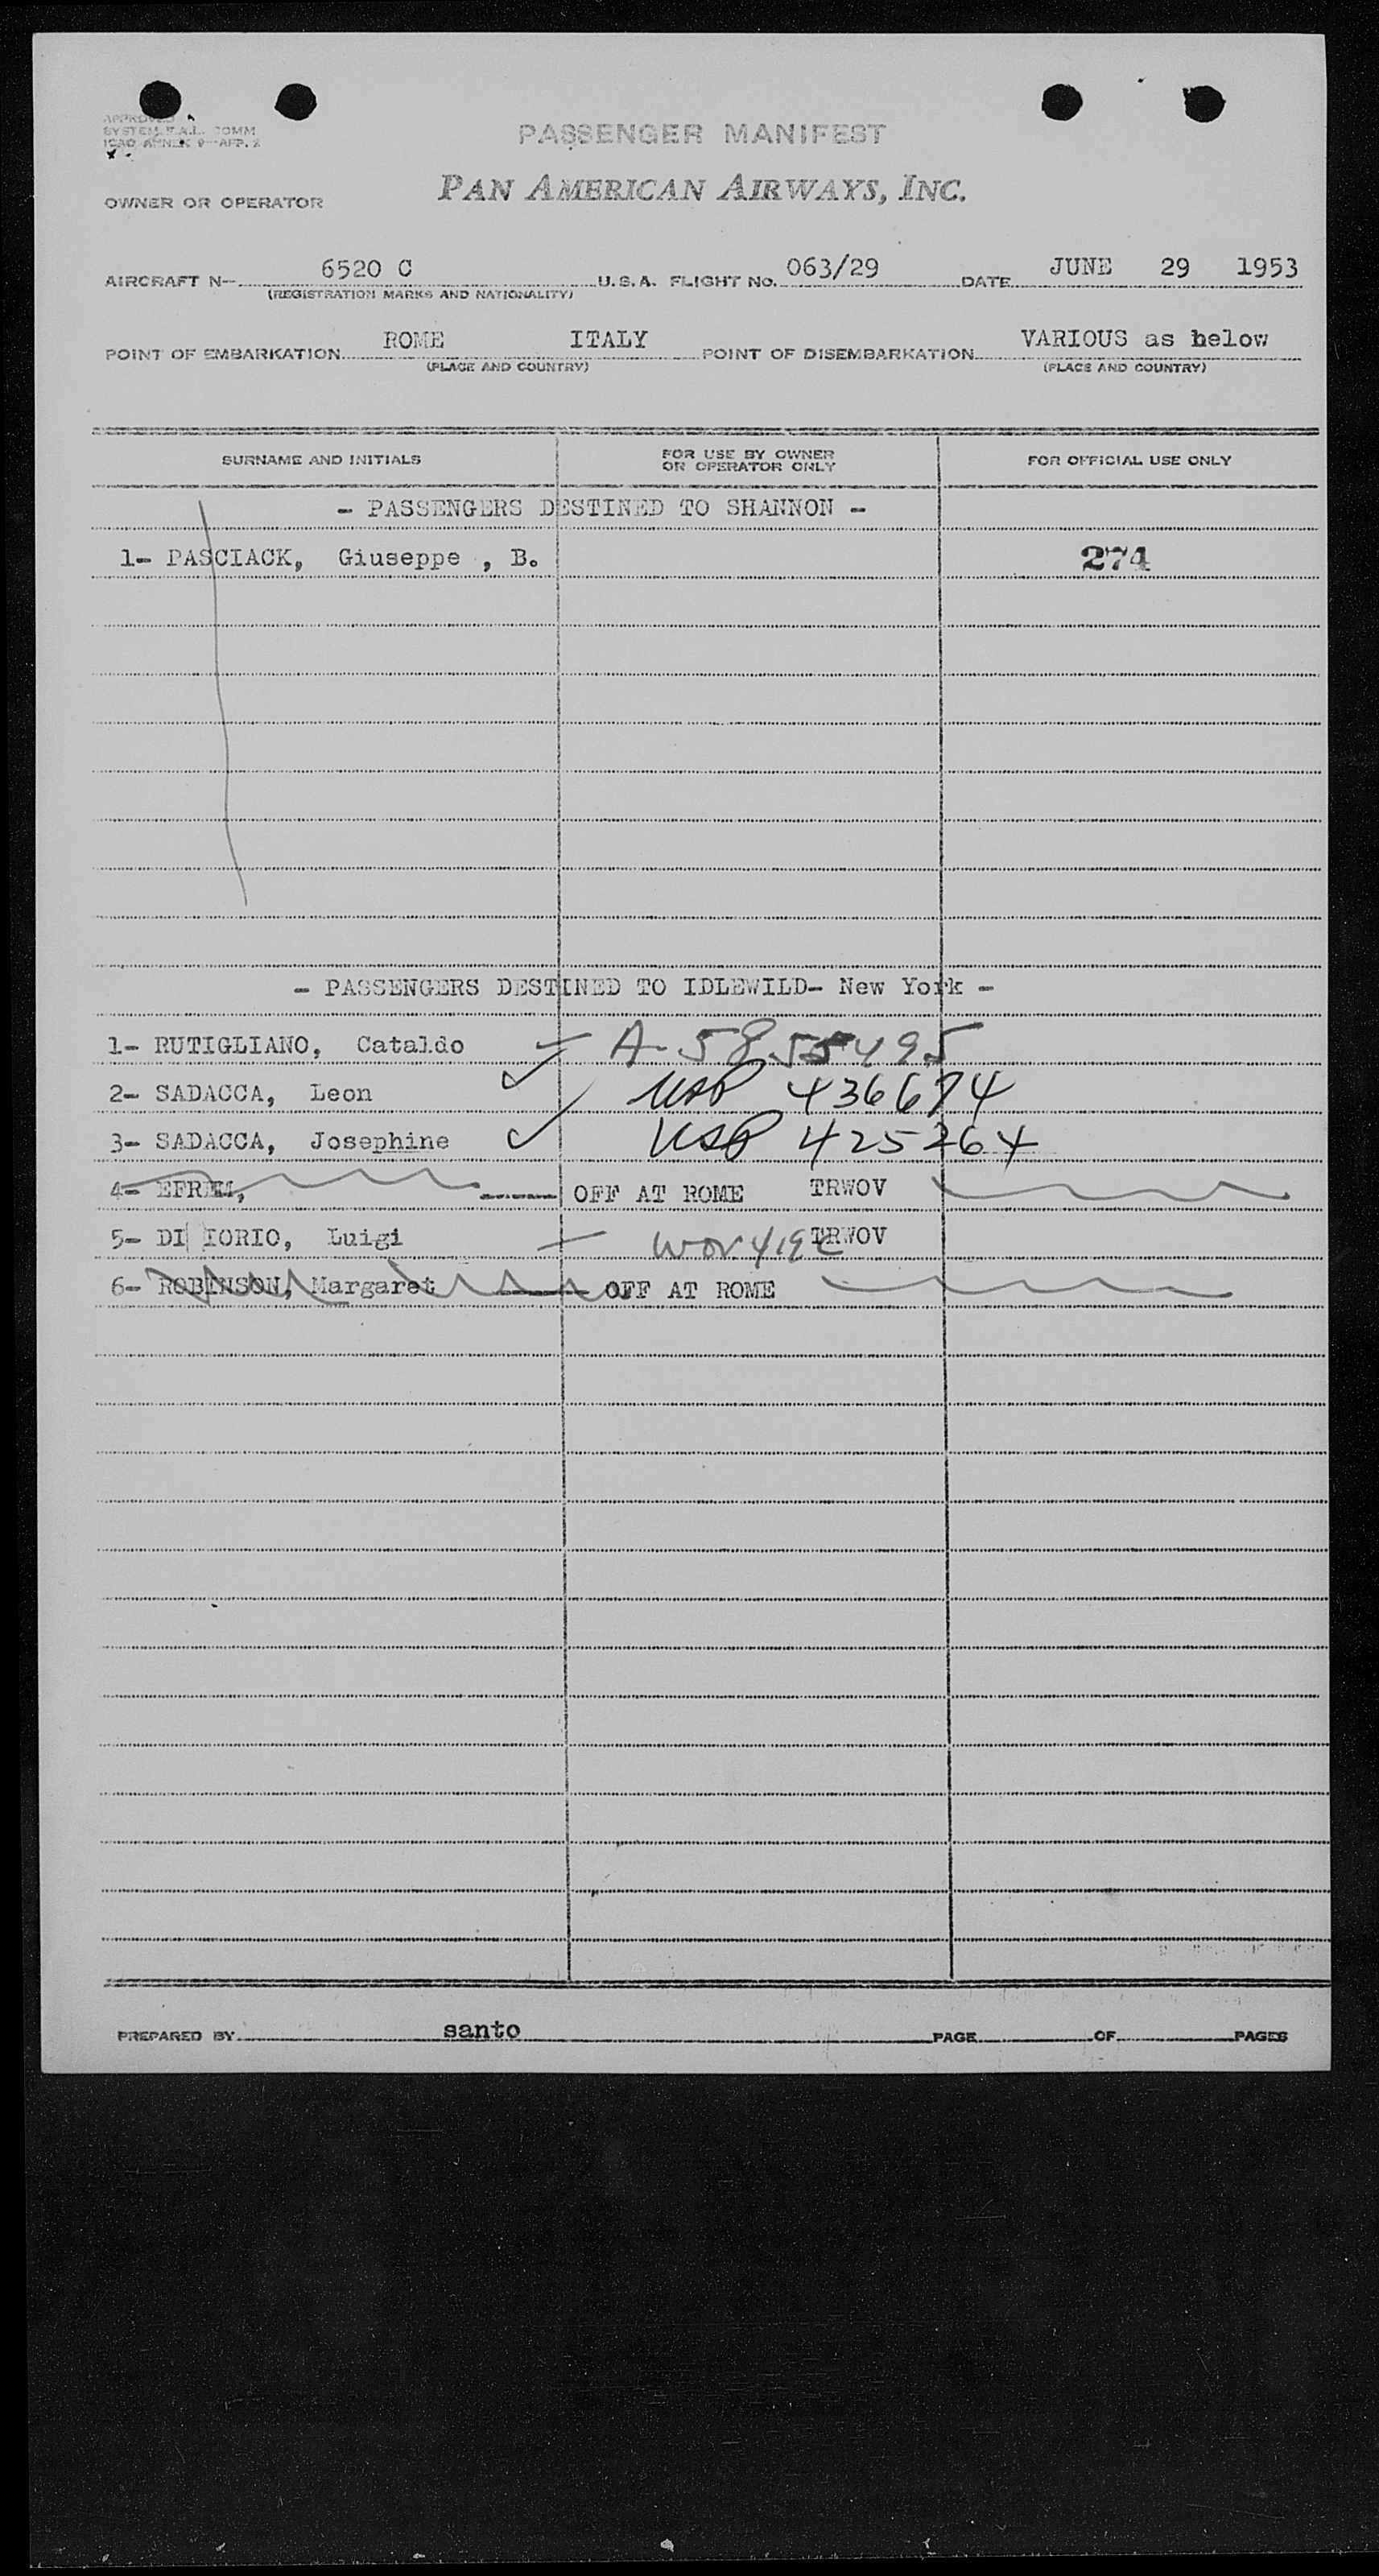 APPROVED
SYSTEM F.A.L. COMM
ICAO ANNEX 9—APP. 2
PASSENGER MANIFEST
OWNER OR OPERATOR PAN AMERICAN AIRWAYS, INC.
AIRCRAFT N— 6520 C U.S.A. FLIGHT NO. 063/29 DATE JUNE 29 1953
(REGISTRATION MARKS AND NATIONALITY)
POINT OF EMBARKATION ROME ITALY POINT OF DISEMBARKATION VARIOUS as below
(PLACE AND COUNTRY) (PLACE AND COUNTRY)
SURNAME AND INITIALS FOR USE BY OWNER OR OPERATOR ONLY FOR OFFICIAL USE ONLY
- PASSENGERS DESTINED TO SHANNON -
1- PASCIACK, Giuseppe , B. 274
- PASSENGERS DESTINED TO IDLEWILD- New York -
1- RUTIGLIANO, Cataldo A-5855495
2- SADACCA, Leon USP 436674
3- SADACCA, Josephine USP 425264
4- OFF AT ROME TRWOV
5- DI IORIO, Luigi TRWOV
6- ROBINSON, Margaret OFF AT ROME
PREPARED BY santo PAGE OF PAGES